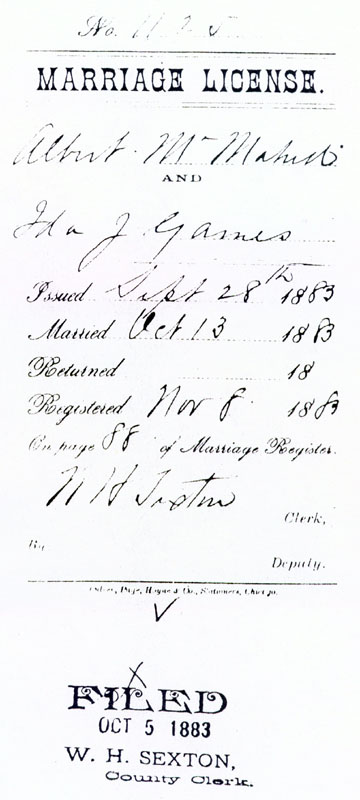 No.
MARRIAGE LICENSE.
Albert Mc
AND
Ida J Games
Issued Sept 28th 1883
Married Oct 13 1883
Returned 18
Registered Nov 8 1883
On page 88 of Marriage Register.
W H Sexton
Clerk,
By
Deputy.
Page, & Co., Stationers, Chicago.
FILED
OCT 5 1883
W. H. SEXTON,
County Clerk.